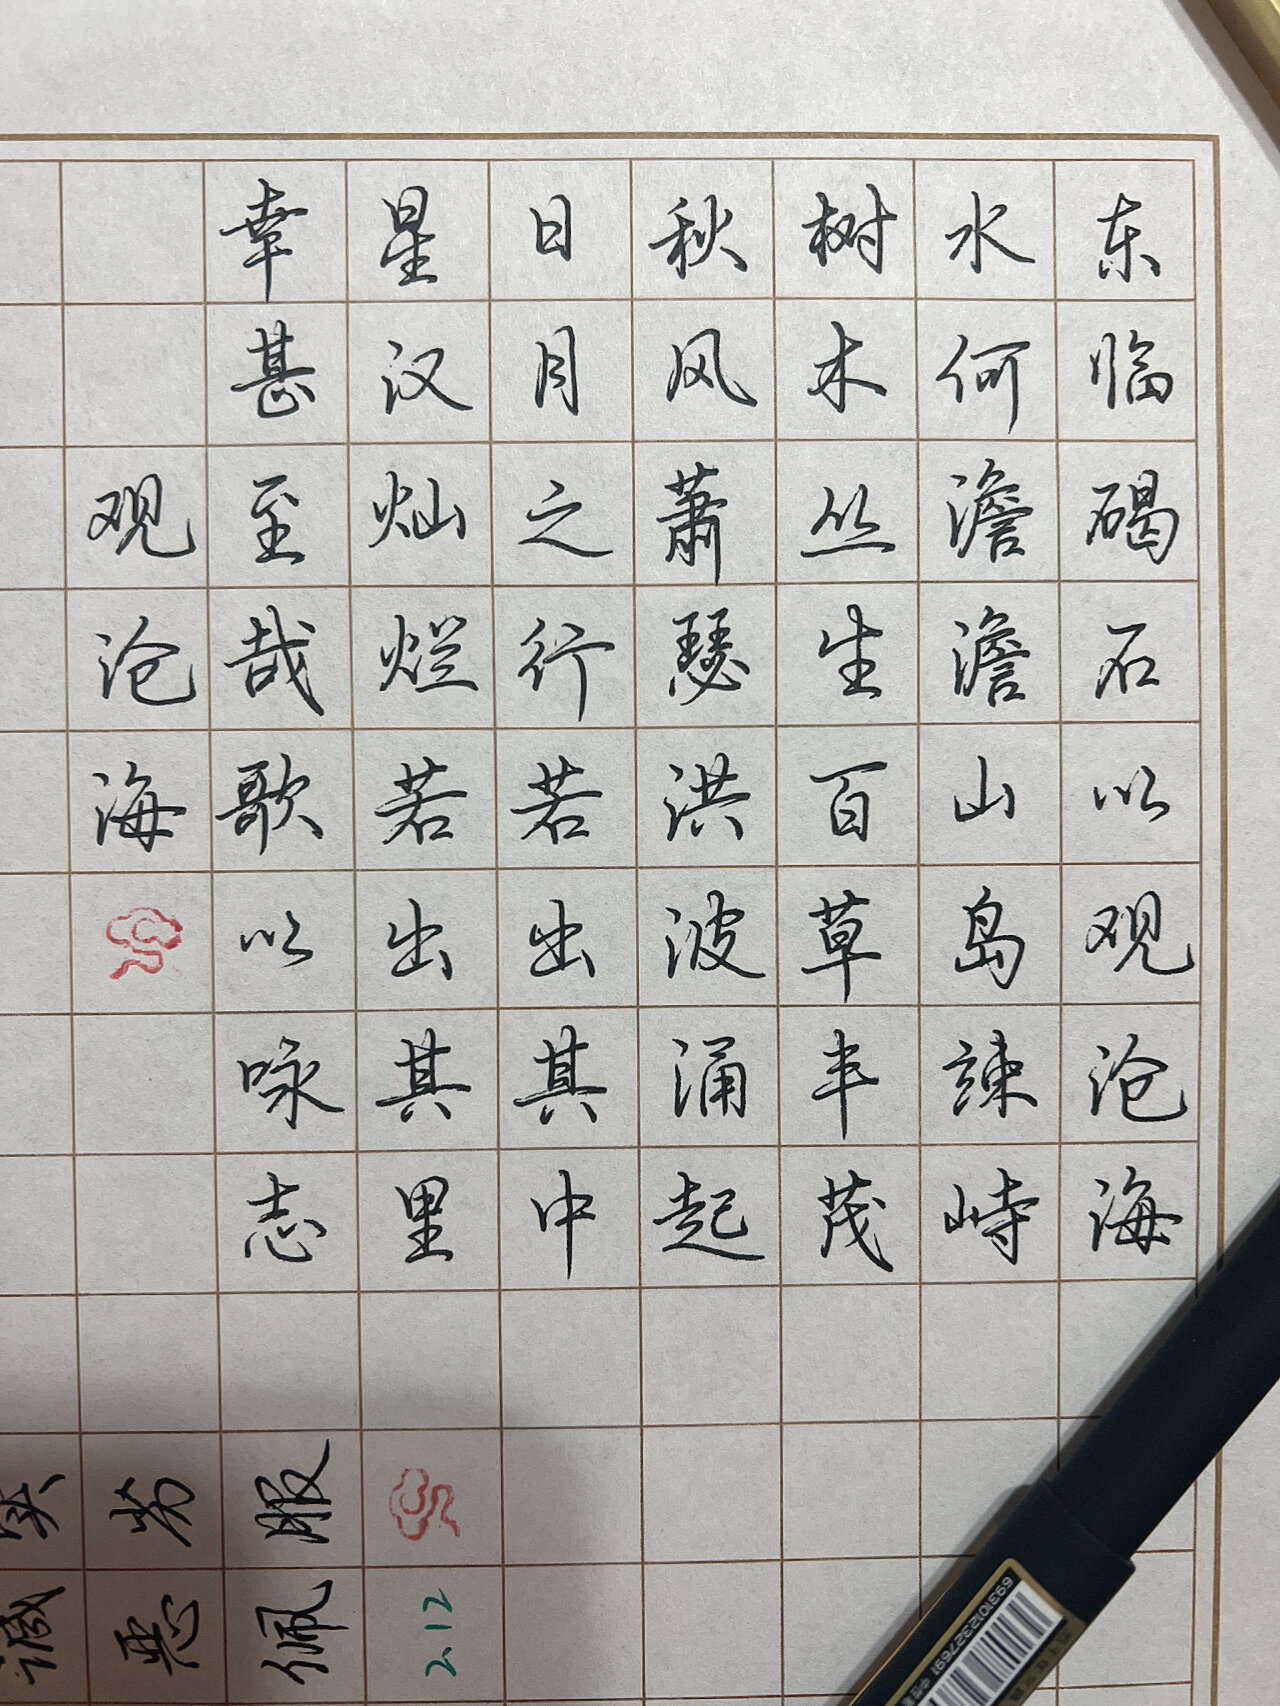 东临碣石以观沧海
水何澹澹山岛竦峙
树木丛生百草丰茂
秋风萧瑟洪波涌起
日月之行若出其中
星汉灿烂若出其里
幸甚至哉歌以咏志
观沧海
2.12
服佩
劳怨
诚
6931012327691